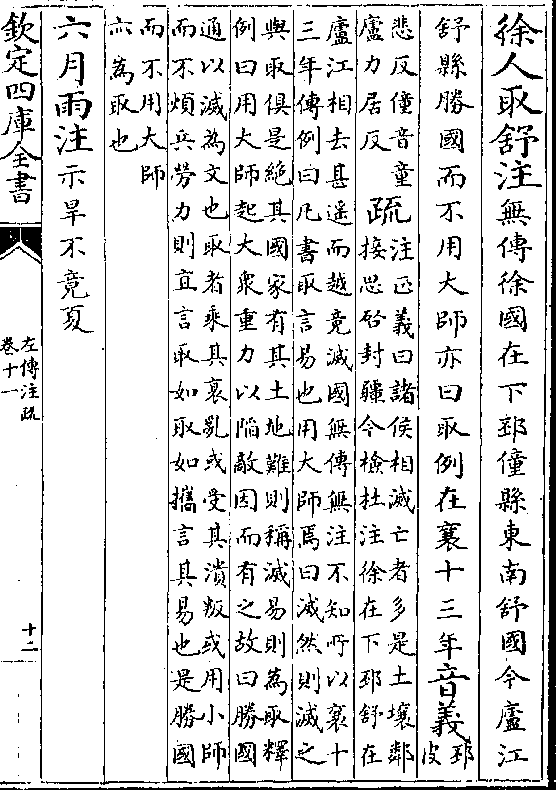 徐人取舒注無傳徐國在下邳僮縣東南舒國今廬江
舒縣勝國而不用大師亦曰取例在襄十三年音義邳皮
悲反僮音童
廬力居反
疏
注正義曰諸侯相滅亡者多是土壤鄰
接思啓封疆今檢杜注徐在下邳舒在
廬江相去甚遥而越竟滅國無傳無注不知所以襄十
三年傳例曰凡書取言易也用大師焉曰滅然則滅之
與取俱是絶其國家有其土地難則稱滅易則為取釋
例曰用大師起大衆重力以陷敵因而有之故曰勝國
通以滅為文也取者乘其衰亂或受其潰叛或用小師
而不煩兵勞力則直言取如取如攜言其易也是勝國
而不用大師
亦為取也
六月雨注示旱不竟夏
欽定四庫全書
左傳注疏
卷十一
十二